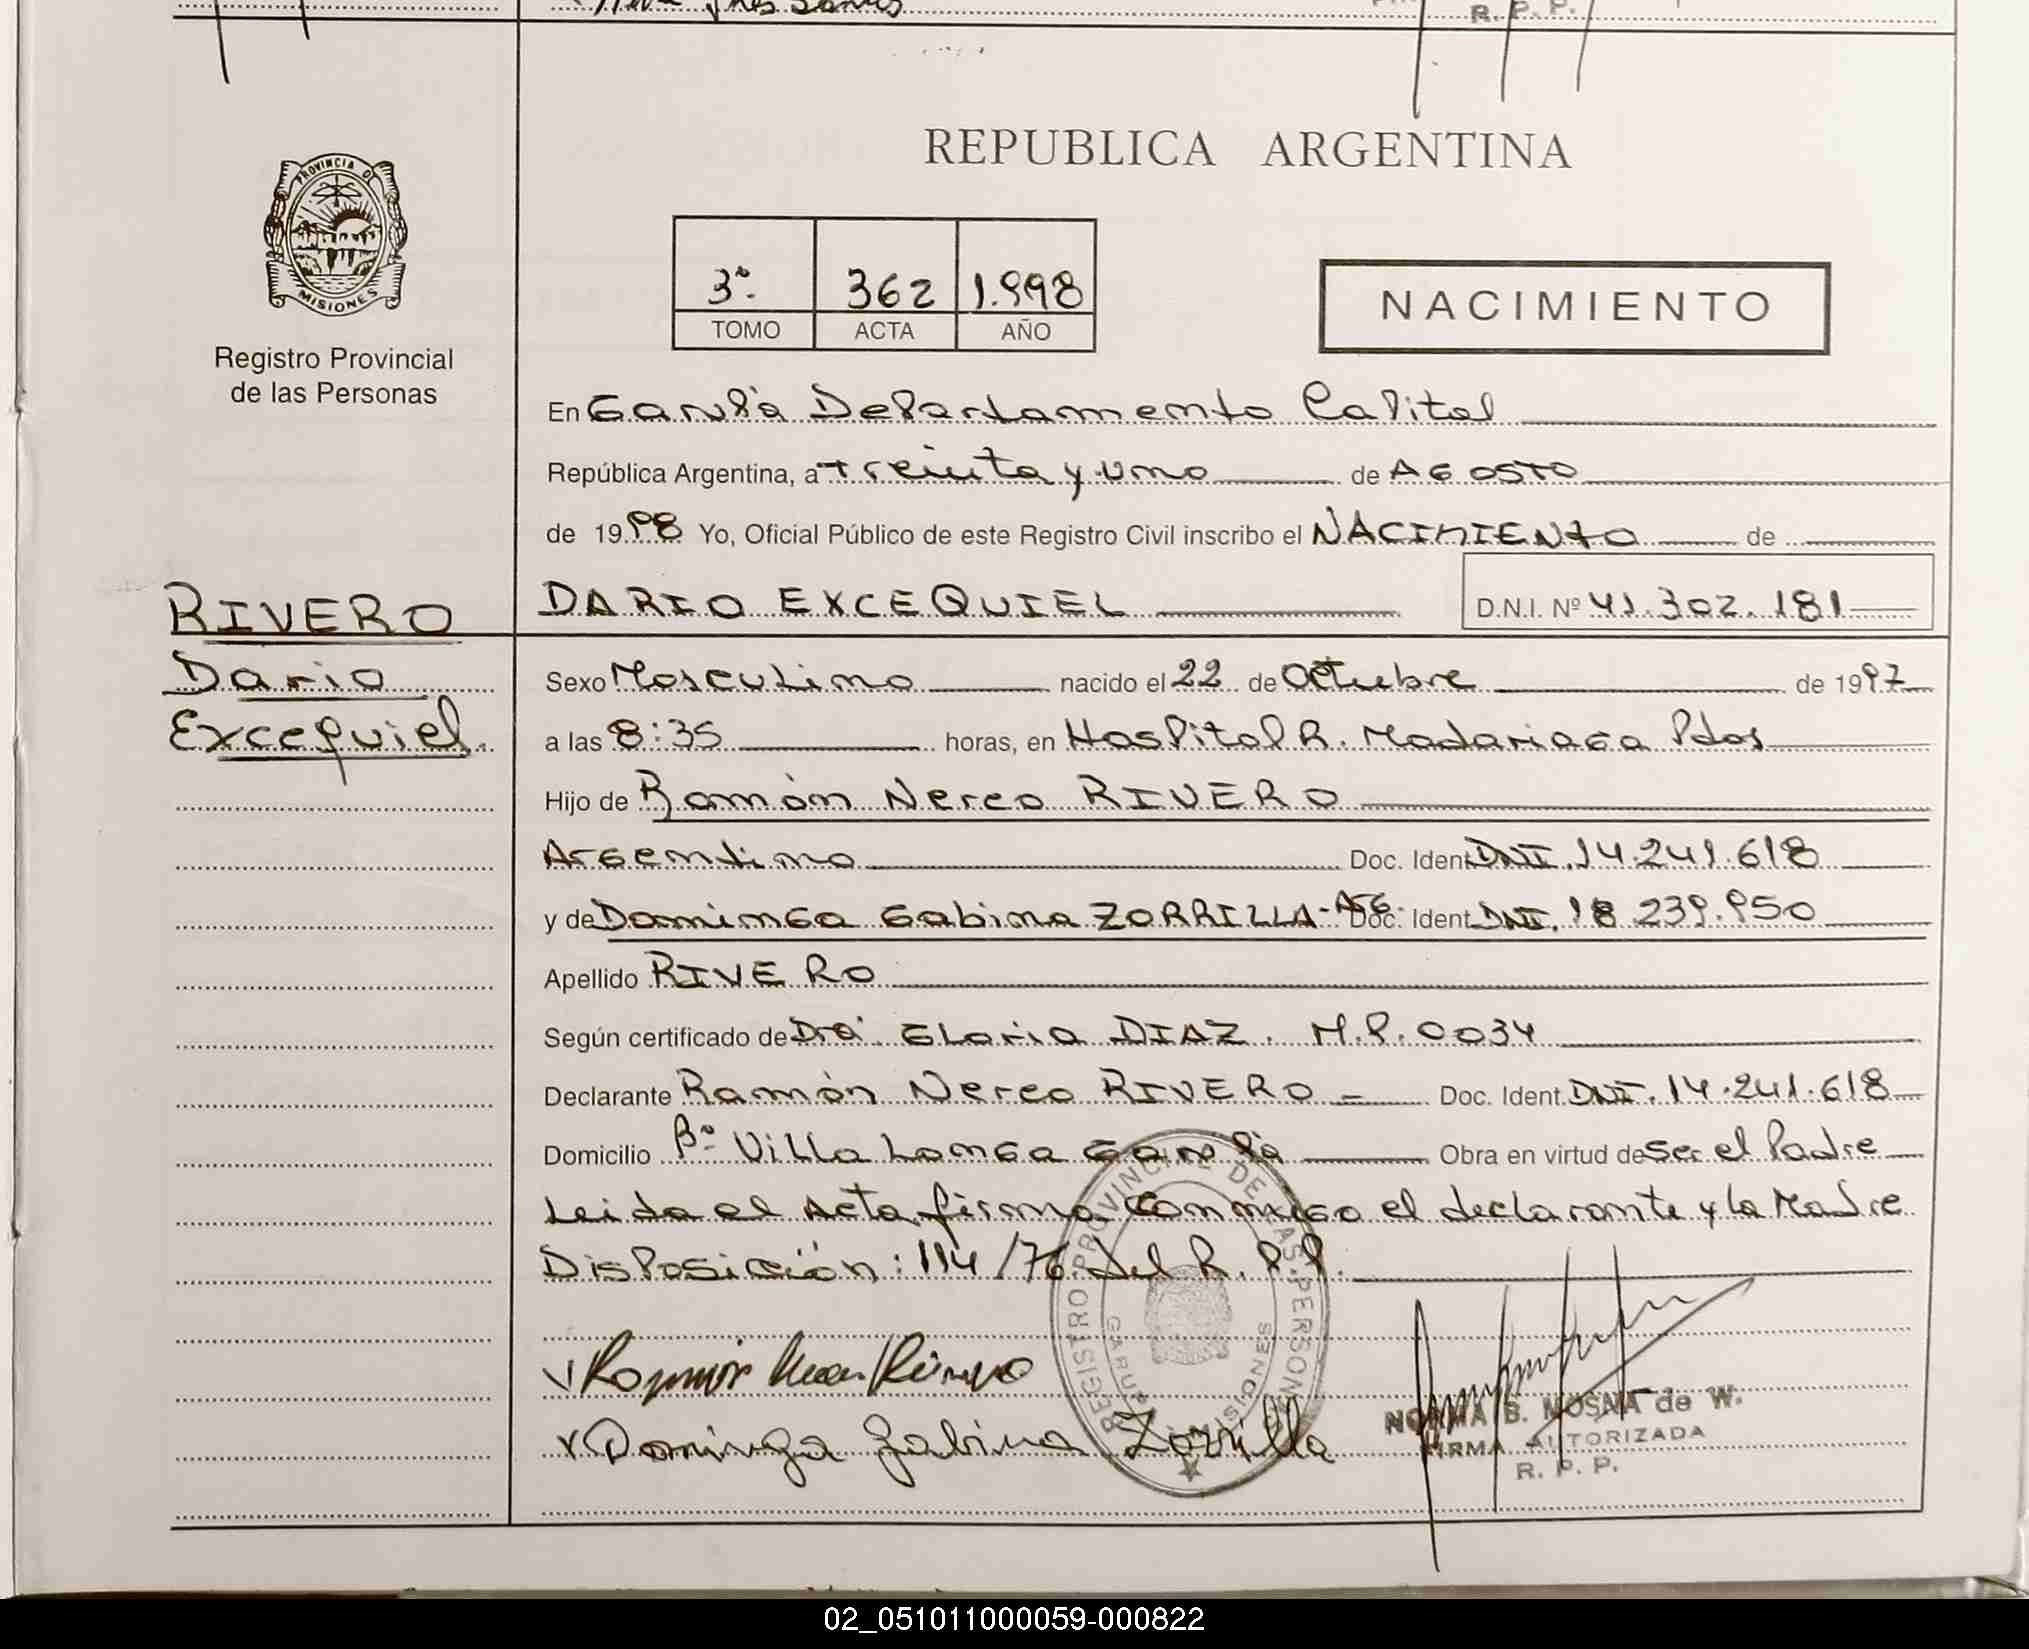 R. P. P.
PROVINCIA DE
MISIONES
Registro Provincial
de las Personas
REPUBLICA ARGENTINA
3º 362 1.998
TOMO ACTA AÑO
NACIMIENTO
En Garupá Departamento Capital
República Argentina, a treinta y uno de AGOSTO
de 1998 Yo, Oficial Público de este Registro Civil inscribo el NACIMIENTO de
DARIO EXCEQUIEL D.N.I. Nº 41.302.181
RIVERO
Dario
Excequiel.
Sexo Masculino nacido el 22 de Octubre de 1997
a las 8:35 horas, en Hospital R. Madariaga Pdas
Hijo de Ramón Nereo RIVERO
Argentino Doc. Ident. DNI. 14.241.618
y de Dominga Gabina ZORRILLA - Arg. Doc. Ident. DNI. 18.239.950
Apellido RIVERO
Según certificado de Dra. Gloria DIAZ. M.P. 0034
Declarante Ramón Nereo RIVERO = Doc. Ident. DNI. 14.241.618
Domicilio Bº Villa Longa Garupá Obra en virtud de ser el Padre
Leida el Acta firma conmigo el declarante y la Madre
Disposición: 114/76 del R.P.P.
REGISTRO PROVINCIAL DE LAS PERSONAS
GARUPA MISIONES
Dominga Gabina Zorrilla
NORMA B. MOSNA de W.
FIRMA AUTORIZADA
R. P. P.
02_051011000059-000822